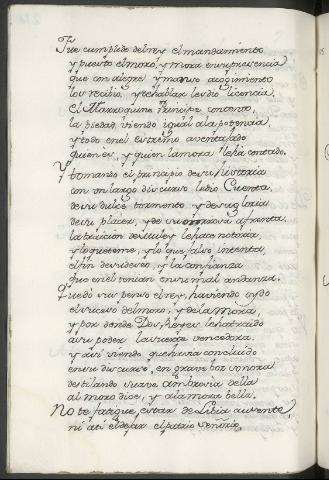 Fue cumplido del rey el mandamiento
y puesto el moro, y mora en su presencia
que con alegre y manso acogimiento
los recibio, y rehablar les dio licencia.
El Marroquino Principe contento,
la piedad viendo igual a la potencia,
y todo en el estremo aventajado
quien es, y quien la mora le ha contado.
Y tomando el principio de su historia
con un largo discurso le dio Cuenta,
de su dulce tormento y de su gloria
de su plazer, y de su afrenta.
la traicion de le haze notoria,
y lo que teme, y lo que falso intenta,
el fin de su desseo, y la confianza
que en el tenian en su mal andanza.
Quedó suspenso el rey, haviendo oydo
el sucesso del moro, y de la Mora,
y por donde Dos Reyes le ha traido
a su poder la suerte vencedora.
y assi viendo que havia concluido
en su discurso, en grave boz sonora
destilando suave ambrosia della
al moro dice, y a la mora bella.
No te fatigue, estar de Libia ausente,
ni assi el dejar el patrio Señorio,